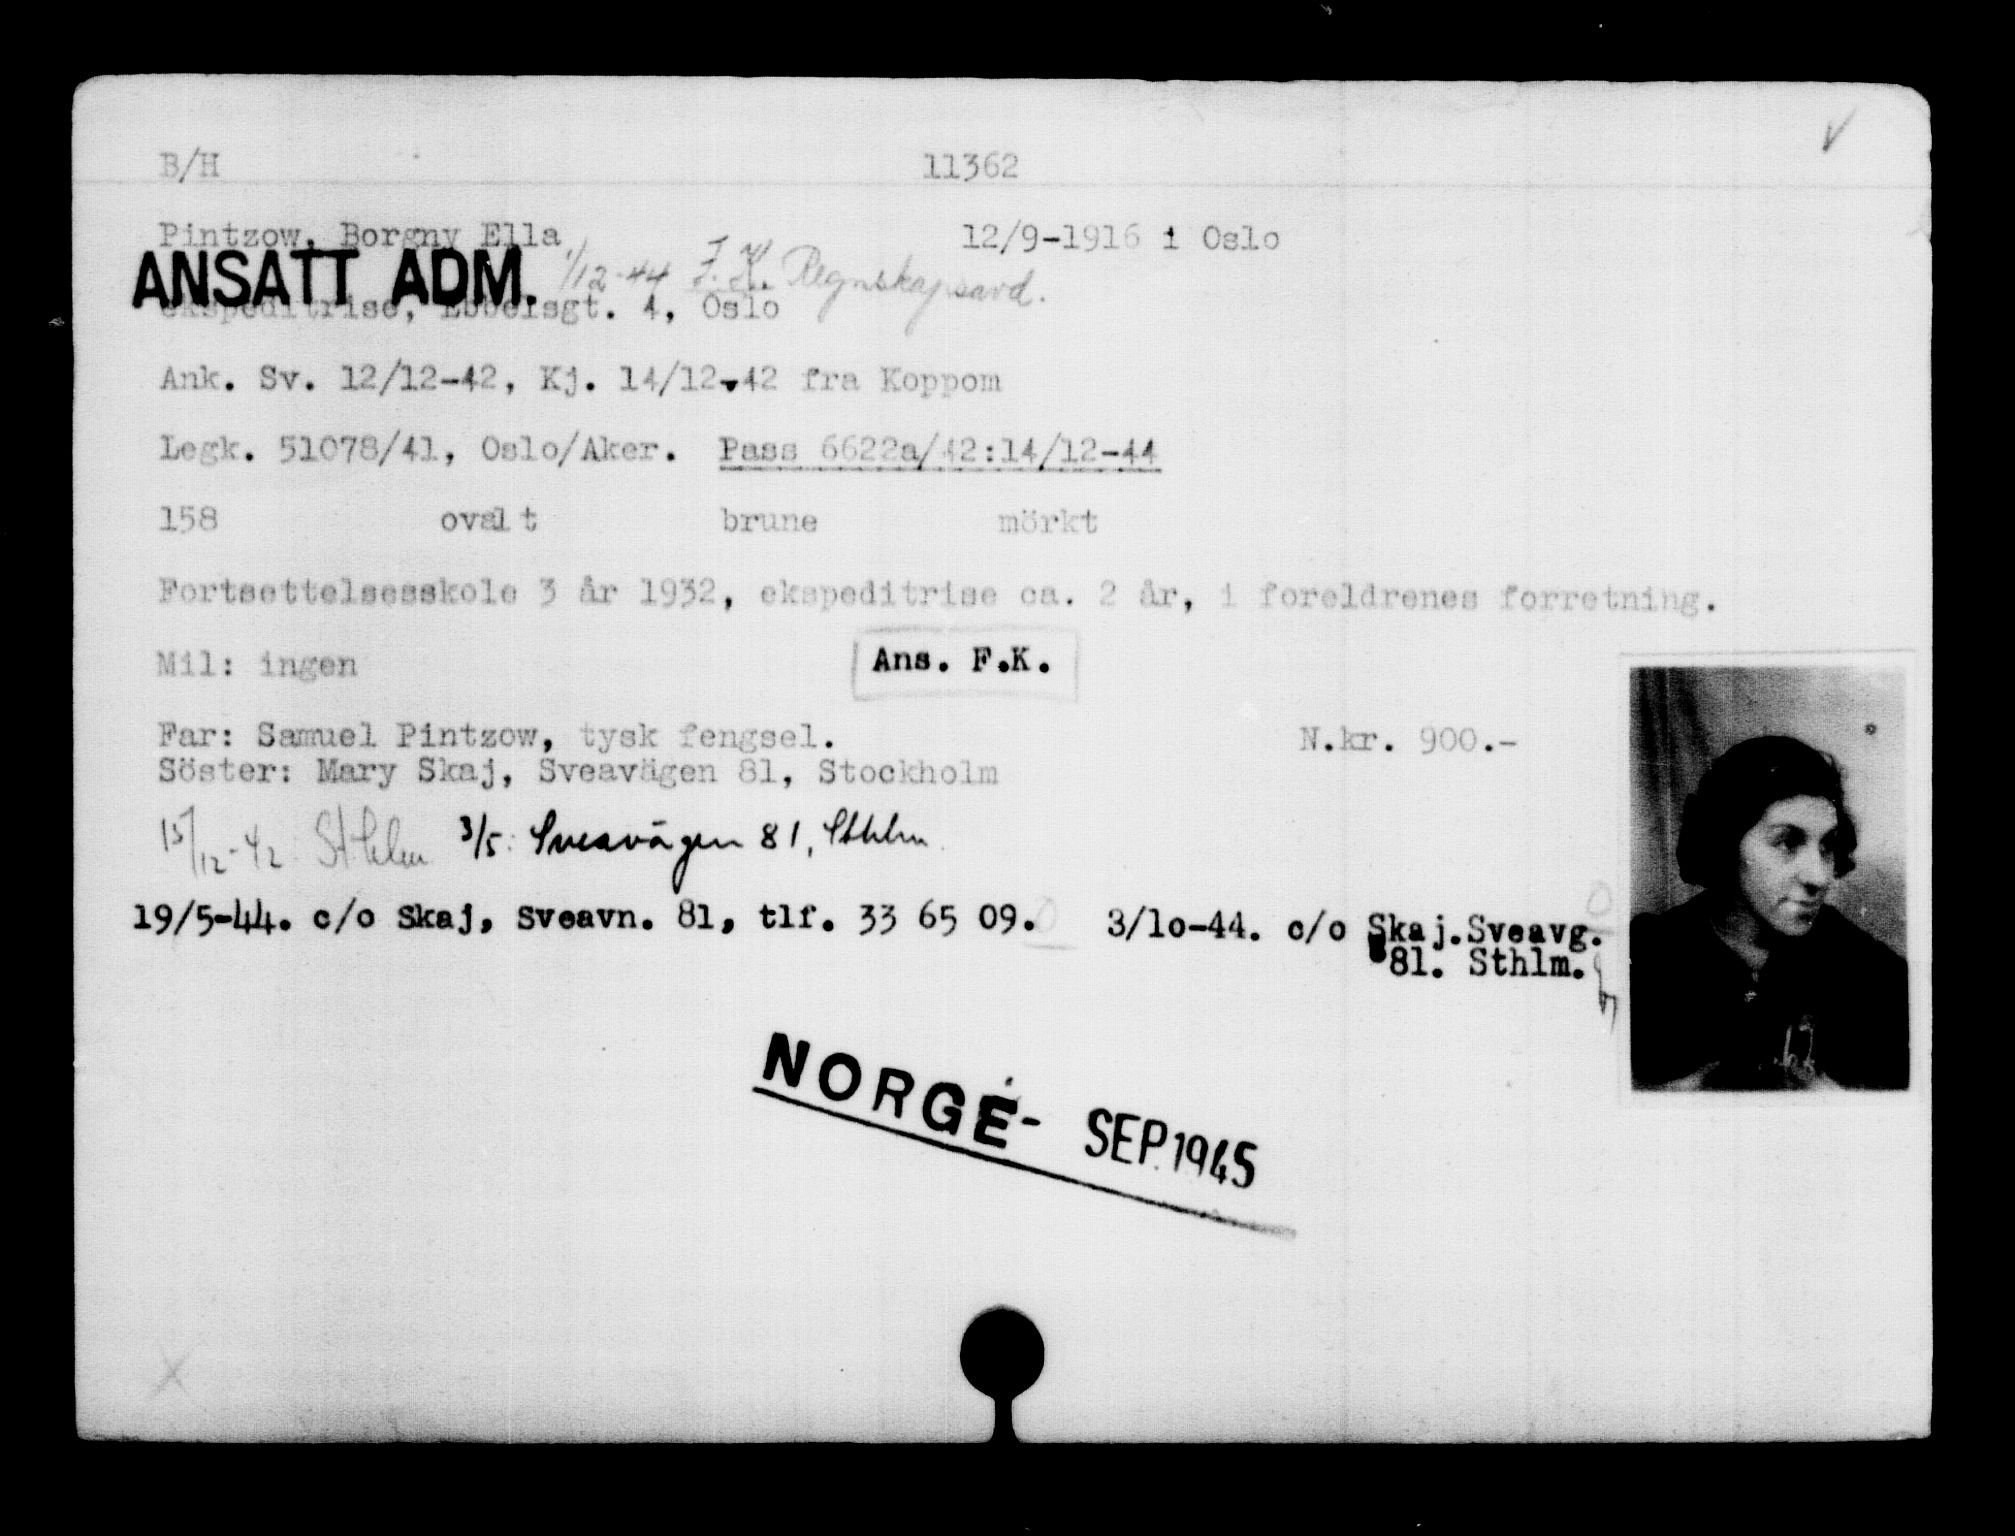 B/H 11362
Pintzow, Borgny Ella 12/9-1916 i Oslo
ANSATT ADM. 1/12-44 F.K. Regnskapsavd.
ekspeditrise, Ebbelsgt. 4, Oslo
Ank. Sv. 12/12-42, Kj. 14/12-42 fra Koppom
Legk. 51078/41, Oslo/Aker. Pass 6622a/42:14/12-44
158 ovalt brune mörkt
Fortsettelsesskole 3 år 1932, ekspeditrise ca. 2 år, i foreldrenes forretning.
Mil: ingen Ans. F.K.
Far: Samuel Pintzow, tysk fengsel. N.kr. 900.-
Söster: Mary Skaj, Sveavägen 81, Stockholm
15/12-42 Sthlm 3/5: Sveavägen 81, Sthlm
19/5-44. c/o Skaj, Sveavn. 81, tlf. 33 65 09. 3/10-44. c/o Skaj.Sveavg.
81. Sthlm.
NORGE- SEP.1945